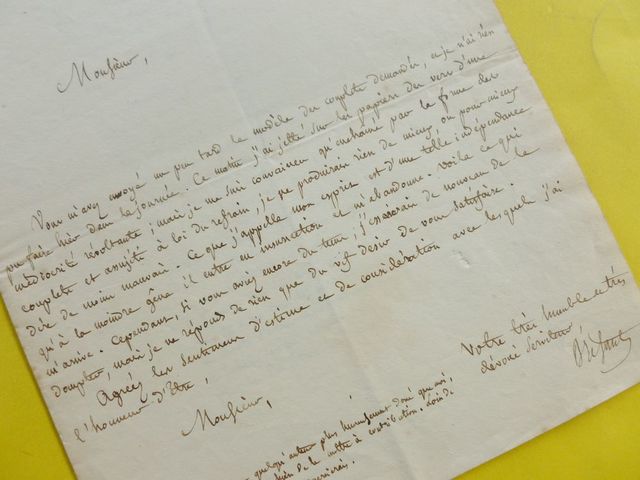 Monsieur,
Vous m'avez envoyé un peu tard le modèle des couplets demandés, et je n'ai rien
pu faire hier dans la journée. Ce matin j'ai jetté sur les papiers des vers d'une
médiocrité révoltante ; mais je me suis convaincu qu'enchainé par la forme des
couplets et assujéti à la loi du refrain, je ne produirais rien de mieux ou pour mieux
dire de moins mauvais. Ce que j'appelle mon esprit est d'une telle indépendance
qu'à la moindre gêne il entre en insurrection et m'abandonne. Voilà ce qui
m'arrive. Cependant, si vous aviez encore du tems, j'essaierais de nouveau de le
dompter, mais je ne réponds de rien que du vif désir de vous satisfaire.
Agréez les sentimens d'estime et de considération avec lesquels j'ai
l'honneur d'être,
Monsieur,
Votre très humble et très
dévoué serviteur,
quelqu'auteur plus heureusement doué que moi,
bien de le mettre à contribution, loin de